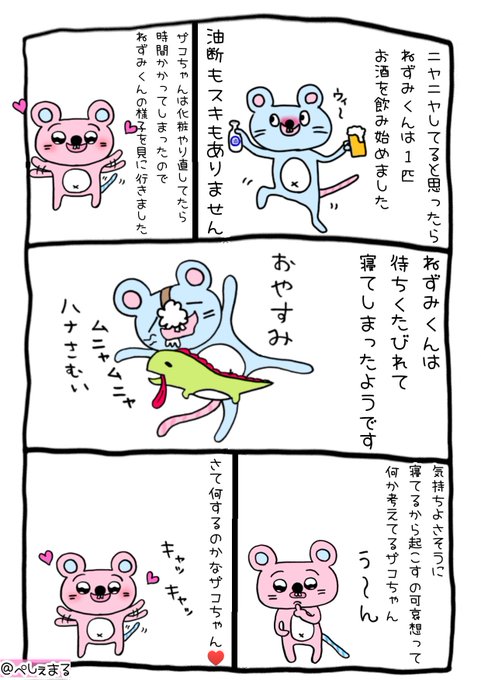 ニヤニヤしてると思ったら
ねずみくんは1匹
お酒を飲み始めました
ウィ〜
油断もスキもありません
ザコちゃんは化粧やり直してたら
時間かかってしまったので
ねずみくんの様子を見に行きました
ねずみくんは
待ちくたびれて
寝てしまったようです
おやすみ
ムニャムニャ
ハナさむい
気持ちよさそうに
寝てるから起こすの可哀想って
何か考えてるザコちゃん
う〜ん
さて何するのかなザコちゃん♥
キャッ
キャッ
@ぺしぇまる